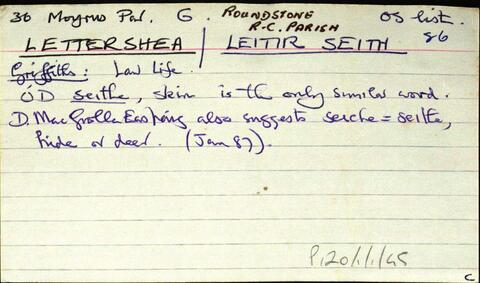 36 Moyrus Par. G. ROUNDSTONE R.C. PARISH OS list. 86
LETTERSHEA / LEITIR SEITH
Griffiths: Law Life.
ÓD seithe, skin is the only similar word.
D. Mac Giolla Easpaig also suggests seiche = seithe,
hide or deer. (Jan 87).
P120/1/1/45
C